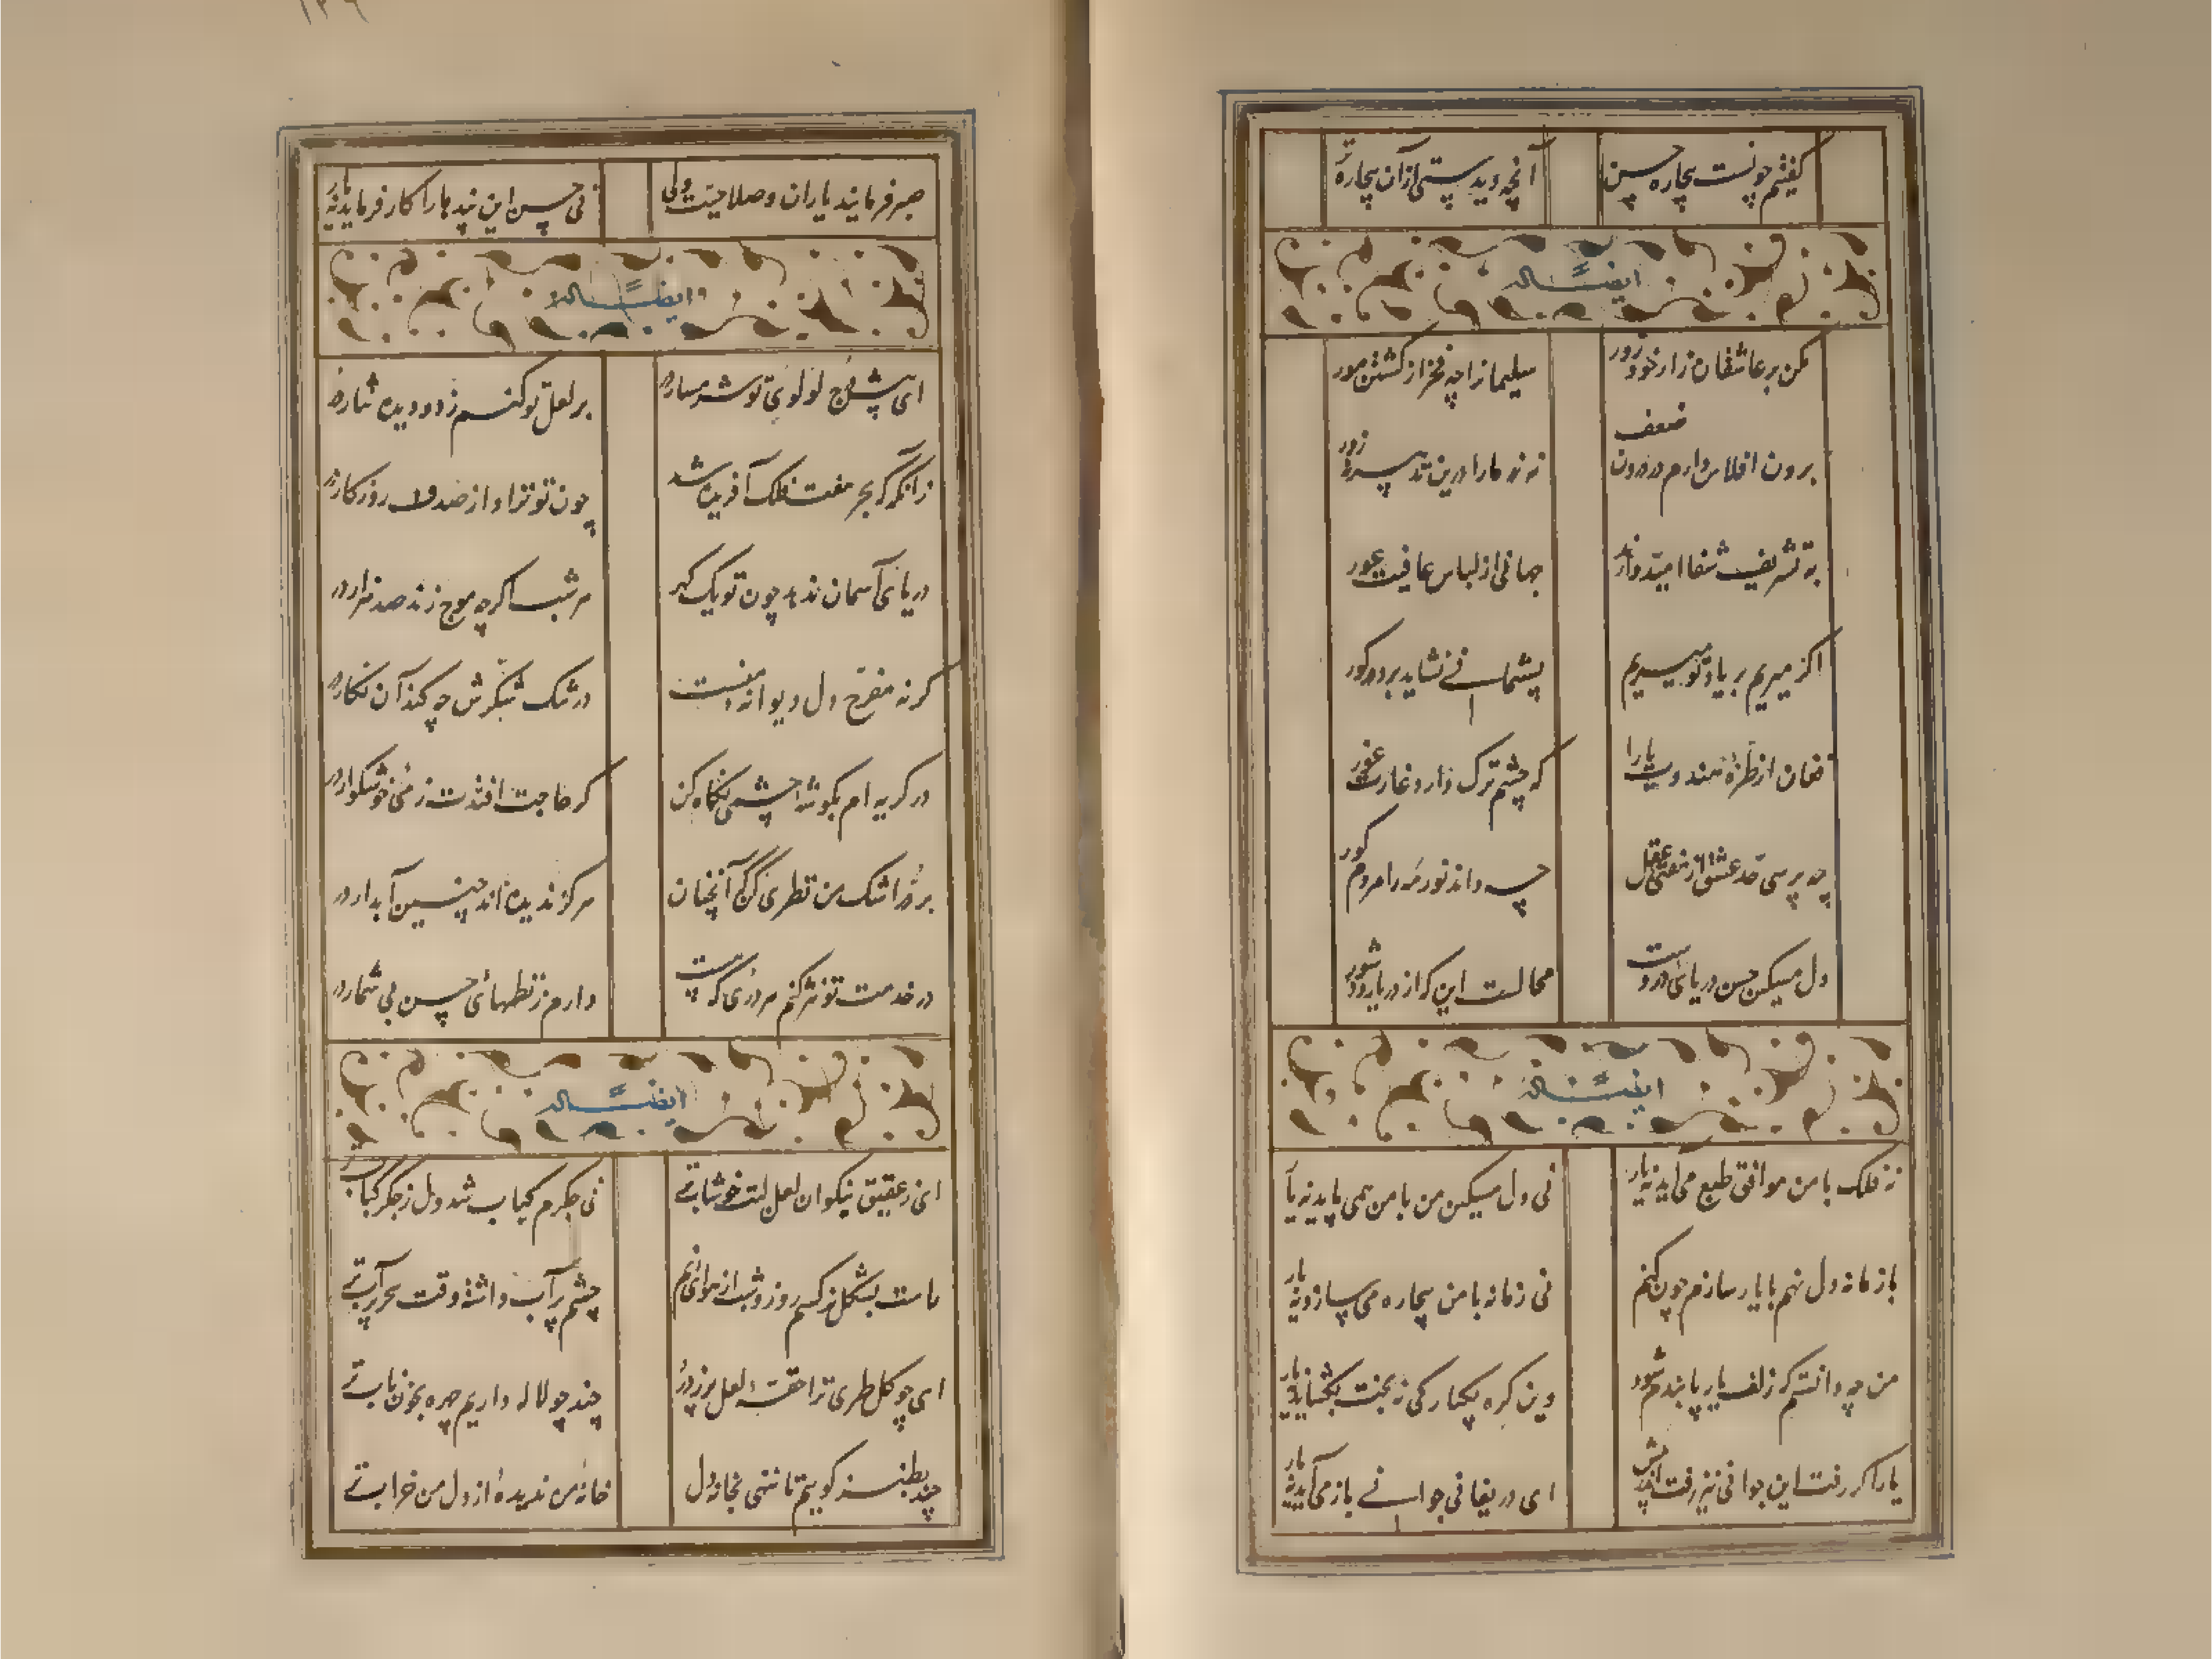 گفتم چونست بیچاره حسن
آنچه دید ستی ازان بیچاره تر
ایضاً له
مکن بر عاشقان زار خود زور
سلیمانرا چه فخر از کشتن مور
برون افلاس دارم درون ضعف
نه زر مارا درین تدبیر نه زور
به تشریف شفا امیدوارند
جهانی از لباس عافیت عور
اگر میریم بر یاد تو میریم
پشیمانی نشاید برد در گور
فغان از طرهٔ هندوت یارا
که چشم ترک دارد غارت غور
چه پرسی قدر عشق از مفتی عقل
چه داند نور مه را مردم کور
دل مسکین حسن دریای دردست
محالست این که از دریا رود شور
ایضاً له
نه فلک با من موافق طبع می‌آید نه یار
نی دل مسکین من با من همی پاید نه یار
با زمانه دل نهم با یار سازم چون کنم
نی زمانه با من بیچاره می سازد نه یار
من چه دانستم که زلف یار پابندم شود
وین گره یکبارگی نه بخت بگشاید نه یار
یار اگر رفت این جوانی نیز رفت
ای دریغا نی جوانی باز می آید نه یار
صبر فرمایند یاران و صلاحیت ولی
نی حسن این پند ما را کار فرماید نه یار
ایضاً له
ای پیش درج لولوی تو شرمسار در
بر لعل تو کنم ز دو دیده نثار در
زانگه که بحر هفت فلک آفریده شد
چون تو نزاد از صدف روزگار در
دریای آسمان ندهد چون تو یک گهر
هر شب اگرچه موج زند صد هزار در
گر نه مفرح دل دیوانه منست
در تنگ شکرش چه کند آن نگار در
در گریه ام بگوشهٔ چشمی نگاه کن
گر حاجت افتدت ز می خوشگوار در
بر در اشک من نظری کن که آنچنان
هرگز ندیده‌اند چنین آبدار در
در خدمت تو نثر کنم هر دری که هست
دارم ز نظمهای حسن بی شمار در
ایضاً له
ای ز عقیق نیکوان لعل لبت خوشاب تر
نی جگرم کباب شد دل ز جگر کباب تر
ماست بشکل نرگسم روز و شب از هوای
چشم پر آب داشته وقت سحر پر آب تر
ای چو گل طری ترا حقه لعل پر ز در
چند چو لاله داریم چهره بخون ناب تر
چند بطنز گوییم تا ننهی بجای دل
خانه من ندیدهٔ از دل من خراب تر